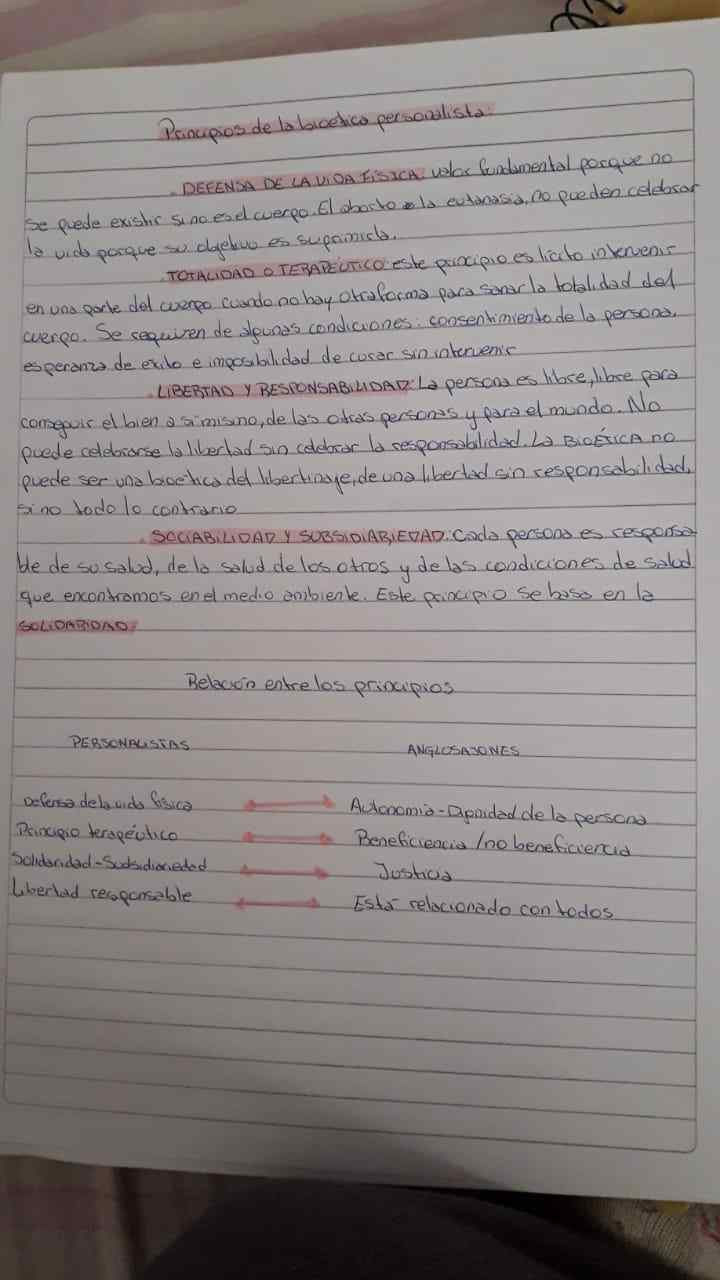 Principios de la bioética personalista:
. DEFENSA DE LA VIDA FÍSICA: valor fundamental porque no
se puede existir si no es el cuerpo. El aborto o la eutanasia, no pueden celebrar
la vida porque su objetivo es suprimirla.
. TOTALIDAD O TERAPEÚTICO: este principio es lícito intervenir
en una parte del cuerpo cuando no hay otra forma para sanar la totalidad del
cuerpo. Se requiren de algunas condiciones: consentimiento de la persona,
esperanza de exito e imposibilidad de curar sin intervenir
. LIBERTAD Y RESPONSABILIDAD: La persona es libre, libre para
conseguir el bien a si mismo, de las otras personas y para el mundo. No
puede celebrarse la libertad sin celebrar la responsabilidad. La BIOÉTICA no
puede ser una bioética del libertinaje, de una libertad sin responsabilidad,
sino todo lo contrario
. SOCIABILIDAD Y SUBSIDIARIEDAD: Cada persona es responsa
ble de su salud, de la salud de los otros y de las condiciones de salud
que encontramos en el medio ambiente. Este principio se basa en la
SOLIDARIDAD.
Relación entre los principios
PERSONALISTAS ANGLOSAJONES
Defensa de la vida física Autonomia-Dignidad de la persona
Principio terapéutico Beneficiencia /no beneficiencia
Solidaridad-Subsidiariedad Justicia
Libertad responsable Está relacionado con todos